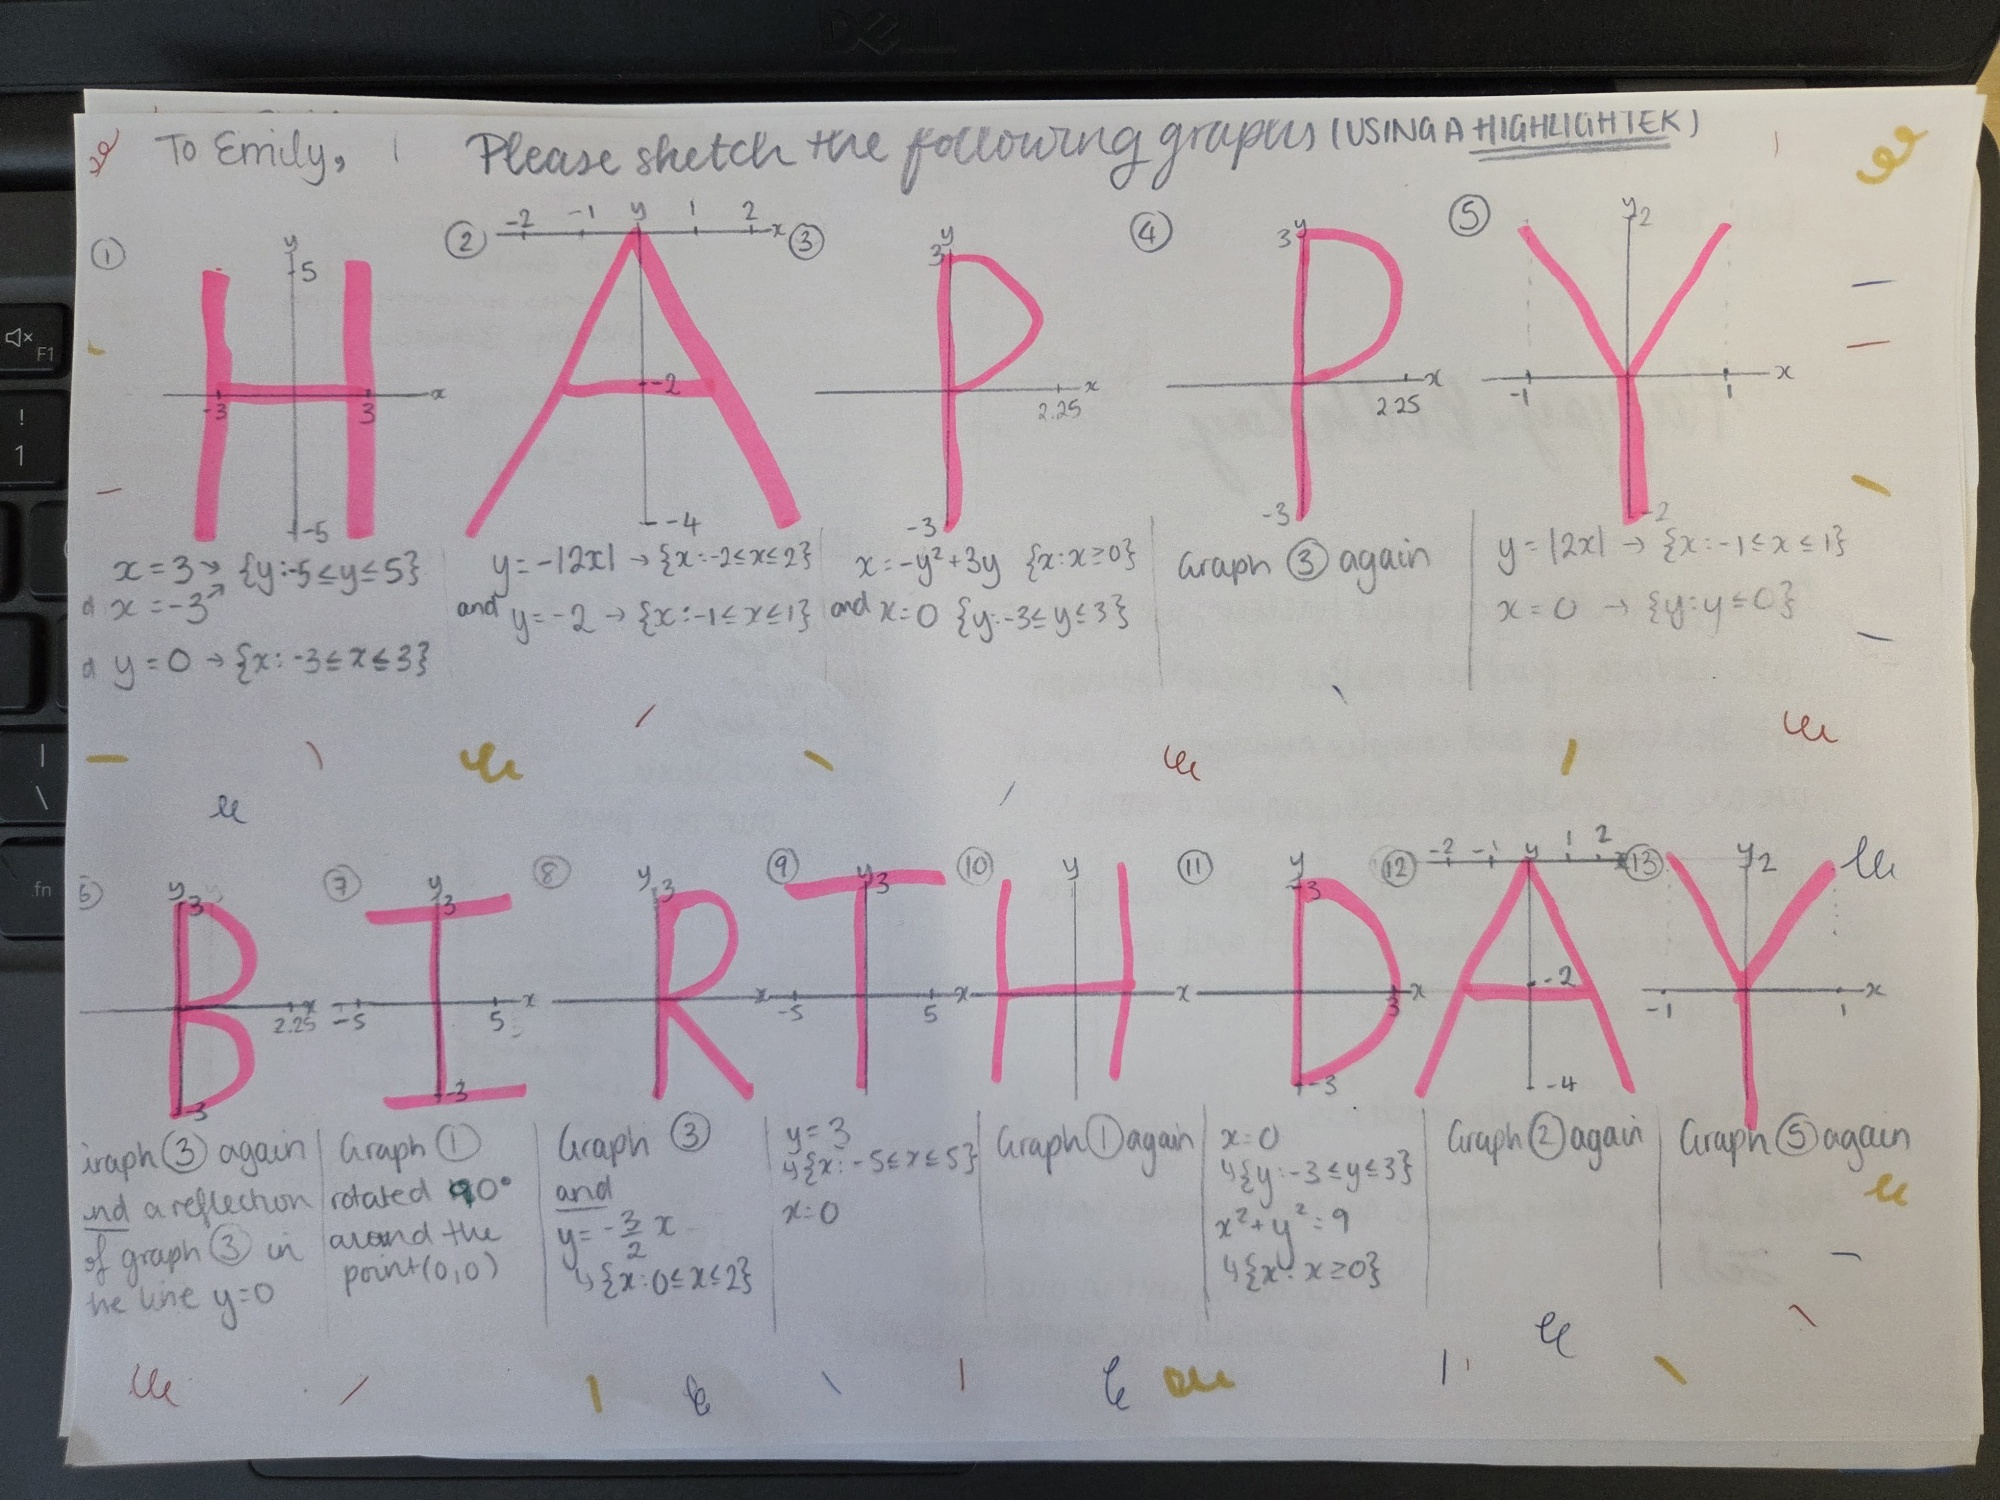 DELL
To Emily, Please sketch the following graphs (USING A HIGHLIGHTER)
① ② ③ ④ ⑤
H A P P Y
y 5 x -3 3 -5
-2 -1 y 1 2 x -2 -4
y 3 x 2.25 -3
3 y x 2.25 -3
y 2 x -1 1 -2
x = 3 → {y:-5≤y≤5}
x = -3
y = 0 → {x: -3≤x≤3}
y = -|2x| → {x:-2≤x≤2}
and y = -2 → {x:-1≤x≤1}
x = -y²+3y {x:x≥0}
and x=0 {y:-3≤y≤3}
Graph ③ again
y = |2x| → {x:-1≤x≤1}
x = 0 → {y:y≤0}
⑦ ⑧ ⑨ ⑩ ⑪ ⑫ ⑬
B I R T H D A Y
y 3 x 2.25 -3
y 3 -5 5 x -3
y 3 x
y 3 -5 5 x
y x
y 3 3 x -3
-2 -1 y 1 2 x -2 -4
y 2 -1 1 x
raph ③ again
nd a reflection
of graph ③ in
he line y=0
Graph ①
rotated 90°
around the
point (0,0)
Graph ③
and
y = -3/2 x
↳{x:0≤x≤2}
y = 3
↳{x: -5≤x≤5}
x = 0
Graph ① again
x=0
↳{y:-3≤y≤3}
x²+y²=9
↳{x: x≥0}
Graph ② again
Graph ⑤ again
F1
!
1
|
\
fn